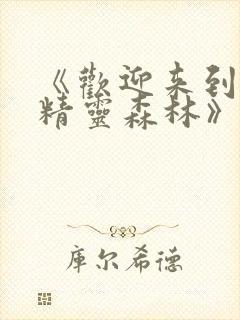 《歡迎来到
精靈森林》
库尔希德